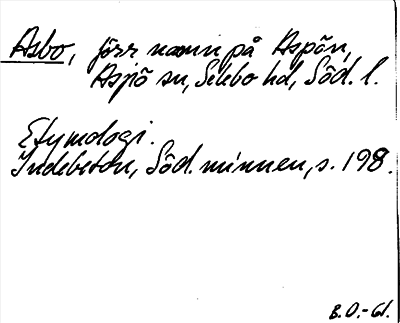 Asbo, förr namn på Aspön,
Aspö sn, Selebo hd, Söd. l.
Etymologi.
Indebetou, Söd. minnen, s. 198.
B.O.-61.